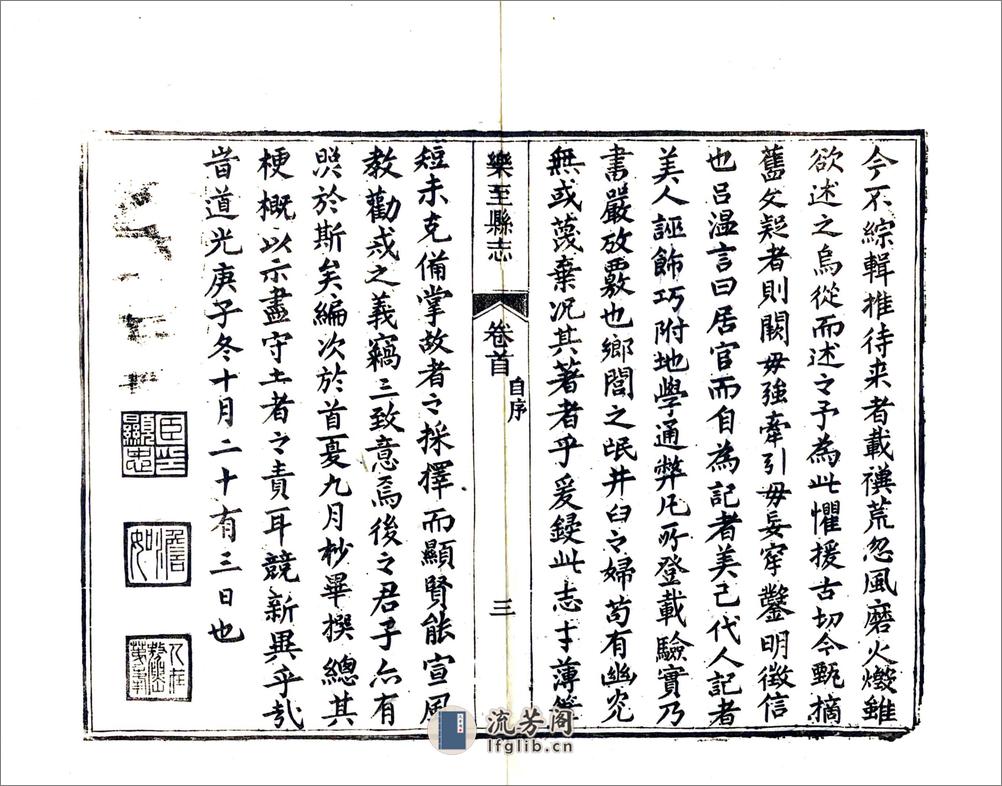 今不綜輯推待来者載禩荒忽風磨火燬雖
欲述之烏從而述之予為此懼援古切今甄摘
舊文疑者則闕毋強牽引毋妄穿鑿明徵信
也吕温言曰居官而自為記者美己代人記者
美人誣飾巧附地學通弊凡所登載驗實乃
書嚴放覈也鄉閭之氓井臼之婦苟有幽光
無或蔑棄况其著者乎爰録此志才薄筆
樂至縣志
卷首
自序
三
短未克備掌故者之採擇而顯賢能宣風
教勸戒之義竊三致意焉後之君子亦有
照於斯矣編次於首夏九月杪畢撰總其
梗概以示盡守土者之責耳競新異乎哉
旹道光庚子冬十月二十有三日也
臣印顯忠
流芳阁
lfglib.cn